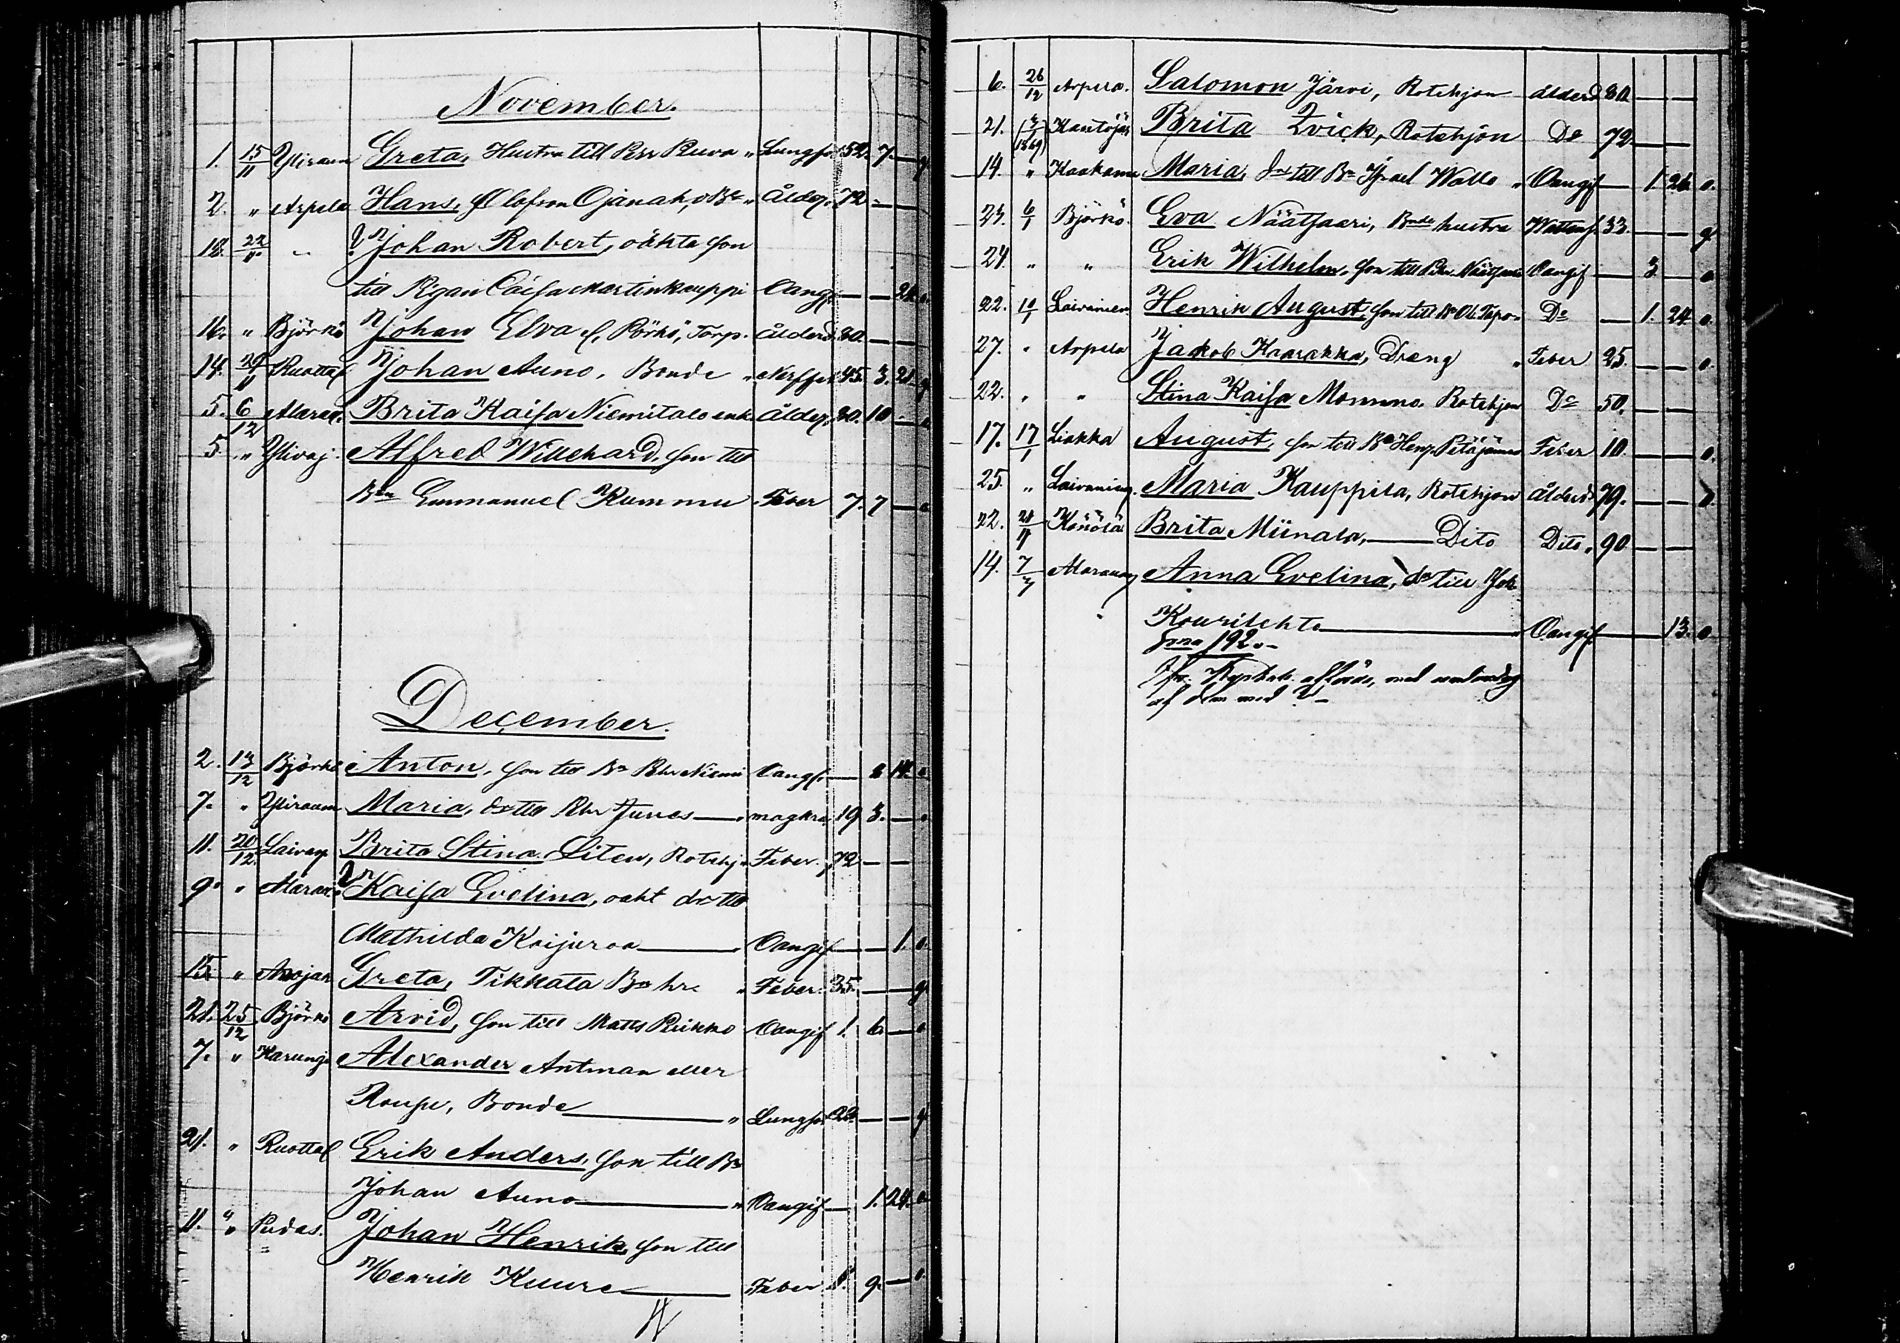 November.
1. 15/11 Yliraum Greta, Hustru till Per Ruva " Lungs. 52. 7. — g
2. " Arpela Hans, Olofson Ojanah, Bde " Ålder. 72 -
18. 22/11 " ? Johan Robert, oäkta son
till Pigan Caisa Martinkauppi Oangif — — 21. o
16. " Björkö Johan Elva f. Pörkö, Torp. ålderd. 80. — —
14. 29/11 Ruottal Johan Auno, Bonde " Nerffeb 45. 3. 21. g
5. 6/12 Alarau. Brita Kaisa Niemitalo enk. Ålder. 80. 10
5. " Ylivoj. Alfred Willehard, son till
Bdn Emmanuel Kummu Feber 7. 7 — o
December.
2. 13/12 Björkö Anton, son till Bn Niemi Oangf. — 14. o
7. " Yliraum Maria, dr till Junes — magkra. 19 3. — o
11. 20/12 Laivan Brita Stina Liten, Rotehj. Feber. 72 — —
9. " Alarau ? Kaisa Evelina, oäkt dr till
Mathilda Koijuroa — Oangif — — 1. o.
15. " Greta, Tikkala " Feber. 35. — g
21. 25/12 Björkö Arvid, son till Matts Pirkko Oangif 1. 6. — o
7. " Karungi Alexander Antman eller
Bonde — " Lungs. 22 — — g
21. " Ruottal Erik Anders, son till Bn
Johan Auno — " Oangif — 1. 24. o
11. " Pudas. Johan Henrik, son till
Henrik Kuure — Feber 11. 9. — o
6. 26/12 Arpela. Salomon Järvi, Rotehjon ålderd 80 — —
21. (3/1 1869) Kantojär Brita Qvick, Rotehjon Do 72. — —
14. " Kaakama Maria, dr till Bn Israel Wallo " Oangif — 1 26. o.
23. 6/1 Björkö. Eva Näätsaari, Bonde hustru Wattens. 33. — — g
24. " " Erik Wilhelm, son till Näätsaari Oangif — 3 — o
22. 10/1 Laivanien Henrik August, son till Do — 1. 24. o.
27. " Arpela Jakob Kaarakka, Dräng " Feber 25. — — o
22. " " Stina Kaisa Mommo, Rotehjon Do 50. — —
17. 17/1 Liakka August, son till Bn Henr. Petäjämaa Feber 10. — — o.
25. " Laivaniem. Maria Kauppila, Rotehjon ålderd. 79. — — o
22. Könölä Brita Miinala, — Dito Dito. 90 — —
14. Alaraum Anna Evelina, dr till Joh
Kourilehto — " Oangif — 13. o.
Sma 192.-
af dem med ?-